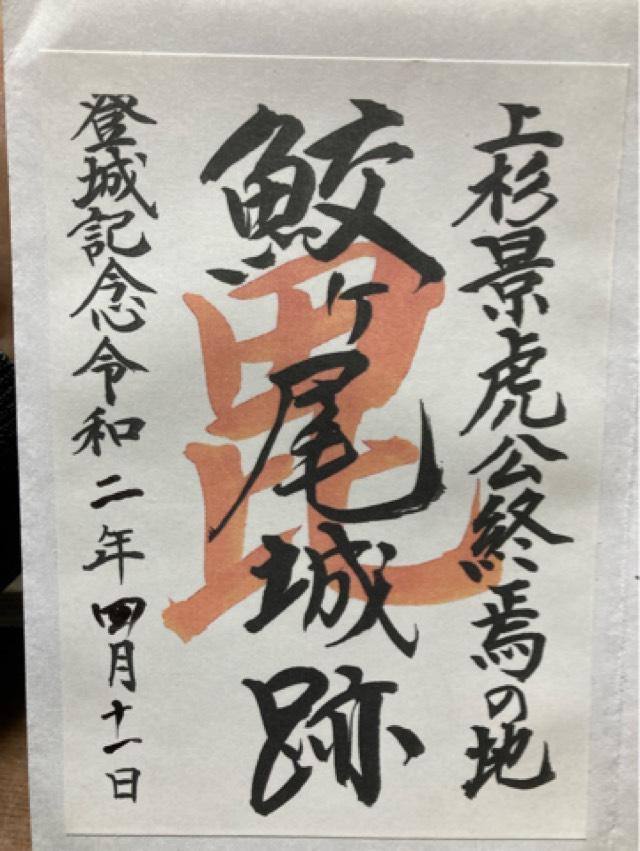 上杉景虎公終焉の地
鮫ヶ尾城跡
毘
登城記念令和二年四月十一日